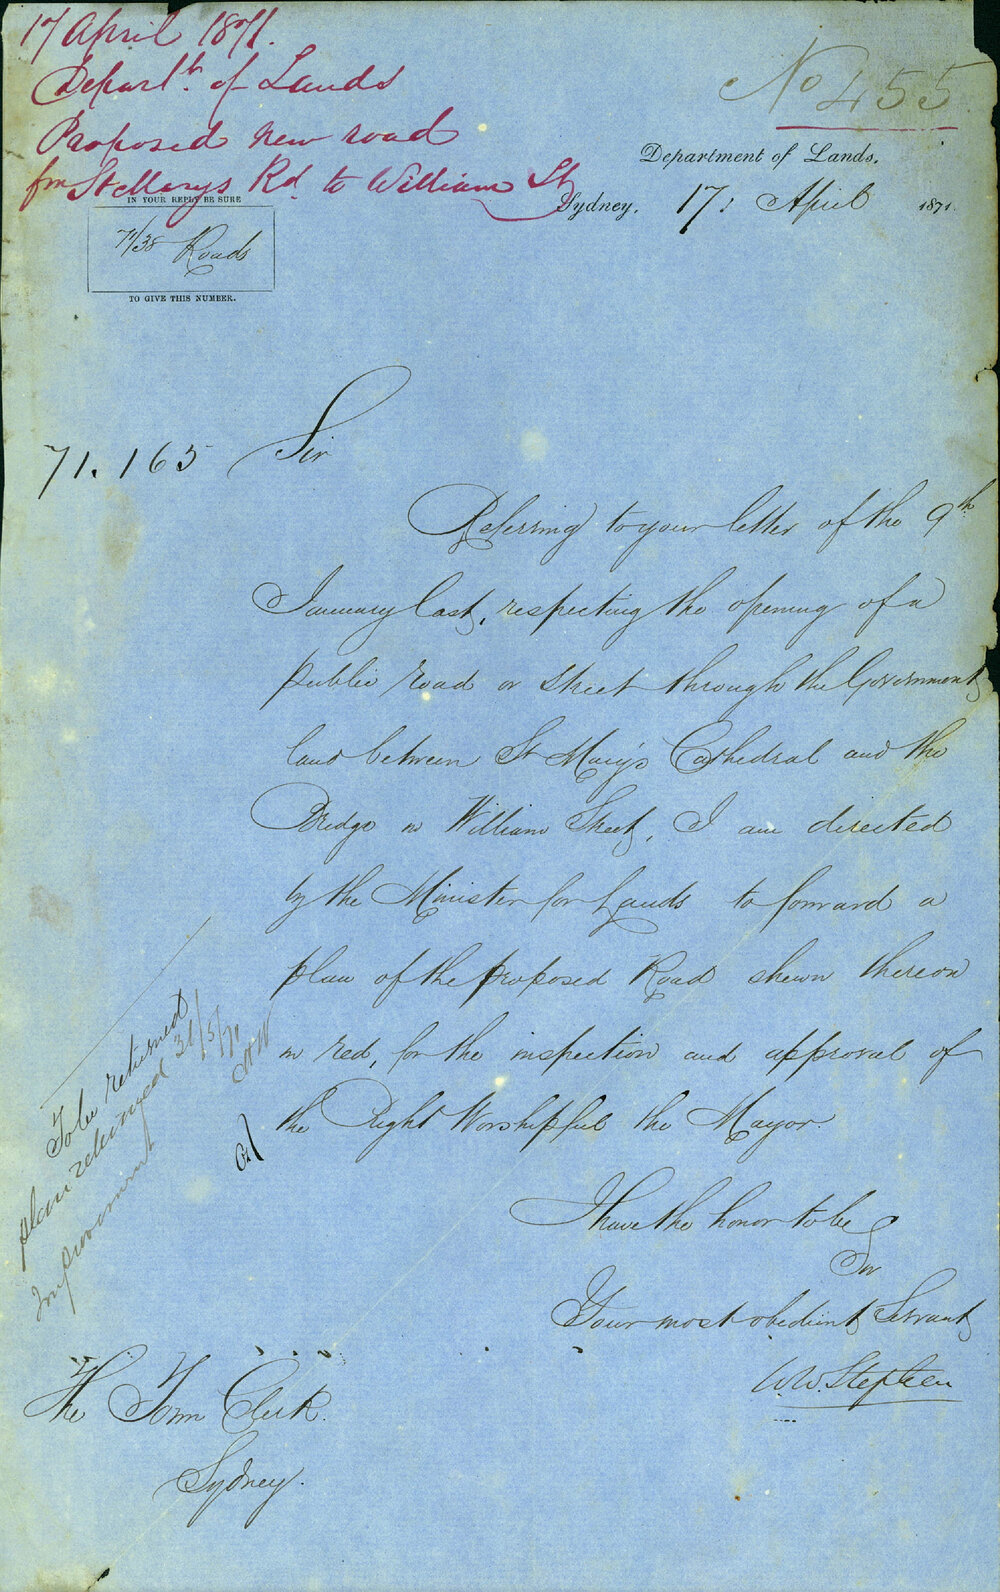 17 April 1871.
Departt. of Lands
Proposed new road
fm St Marys Rd to William St
No 455
Department of Lands,
Sydney, 17: April 1871.
IN YOUR REPLY BE SURE
71/38 Roads
TO GIVE THIS NUMBER.
71.165
Sir
Referring to your letter of the 9th
January last, respecting the opening of a
public road or street through the Government
land between St Mary's Cathedral and the
Bridge in William Street, I am directed
by the Minister for Lands to forward a
plan of the proposed Road shewn thereon
in red, for the inspection and approval of
the Right Worshipful the Mayor.
I have the honor to be
Sir
Your most obedient Servant
W.W. Stephen
The Town Clerk.
Sydney.
To be returned
plan returned 31/5/71
Improvement